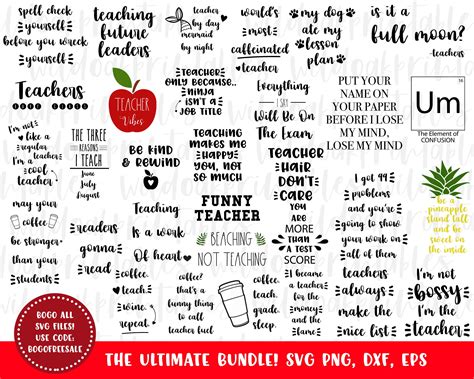 spell check
yourself
before you wreck
yourself
teaching
future
leaders
teacher
by day
mermaid
by night
world's
most
caffeinated
teacher
my dog
ate my
lesson
plan
is it a
full moon?
-teachers
Teachers
TEACHER
Vibes
teaching
only because...
ninja
isn't a
JOB TITLE
Everything
I SAY
Will Be On
The Exam
PUT YOUR
NAME ON
YOUR PAPER
BEFORE I LOSE
MY MIND,
LOSE MY MIND
16
Um
The Element of
CONFUSION
I'm not
like a
regular
teacher
I'm a
cool
teacher
THE THREE
REASONS
I TEACH
June
July
August
Be kind
& REWIND
Teaching
makes me
happy
you, not
so much
Teacher
HAIR
DON'T
CARE
YOU ARE
MORE
THAN A
TEST
SCORE
I got 99
problems
and
you're
going to
show
your
work on
all of
them
be a
pineapple
stand tall
and be
sweet
on the
inside
may your
coffee
be stronger
than your
students
readers
gonna
read
Teaching
Is a work
Of heart
FUNNY
TEACHER
BEACHING
NOT TEACHING
coffee.
teach.
wine.
repeat.
coffee?
that's a
funny thing
to call
fuel
I became
a teacher
for the
money
& fame
teachers
always
make the
nice list
I'm not
bossy
I'm the
teacher
BOGO ALL
SVG FILES!
USE CODE:
BOGOFREESALE
THE ULTIMATE BUNDLE! SVG PNG, DXF, EPS